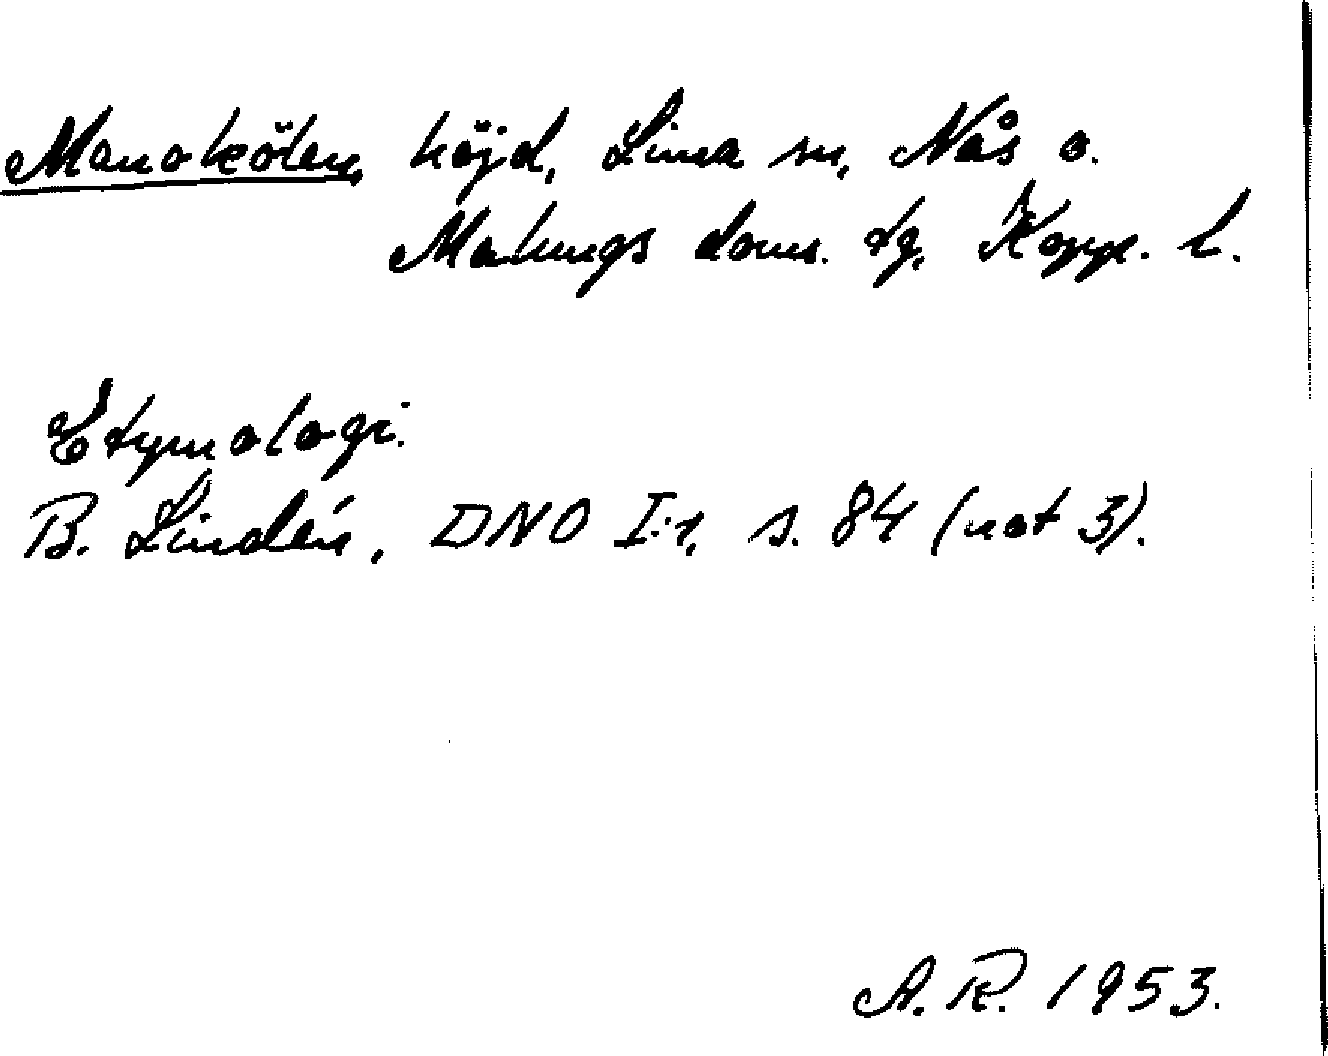 Manokölen, höjd, Lima sn, Nås o.
Malungs doms. tg, Kopp. l.
Etymologi.
B. Lindén, DNO I:1, s. 84 (not 3).
A. R. 1953.